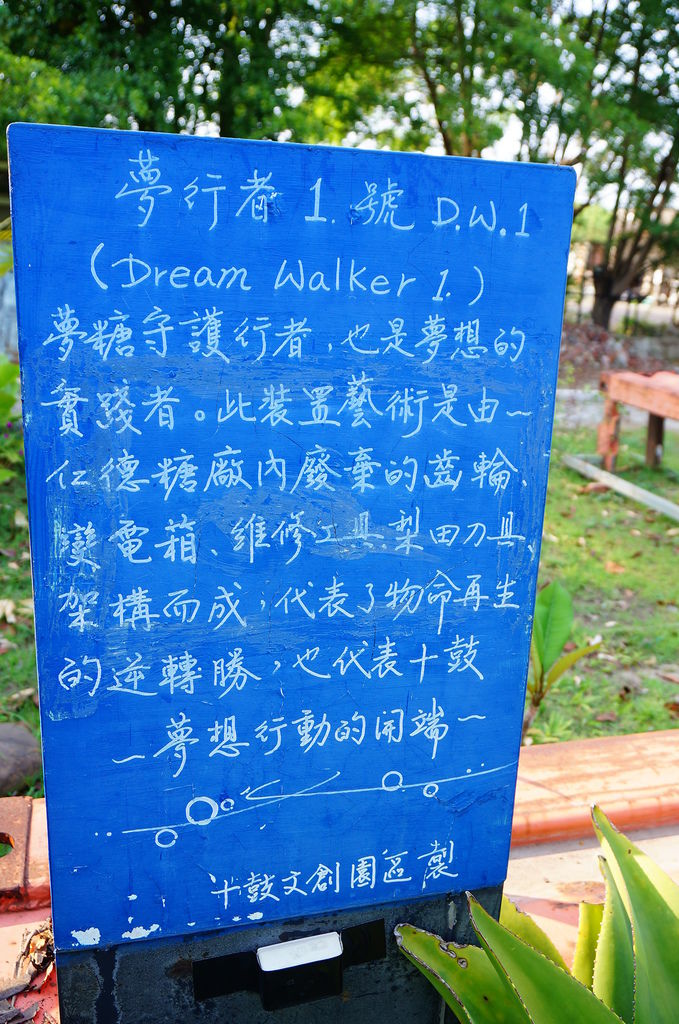 夢行者 1. 號 D.W.1
(Dream Walker 1.)
夢糖守護行者，也是夢想的
實踐者。此裝置藝術是由~
仁德糖廠內廢棄的齒輪、
變電箱、維修工具.梨田刀具、
架構而成，代表了物命再生
的逆轉勝，也代表十鼓
~夢想行動的開端~
十鼓文創園區 製